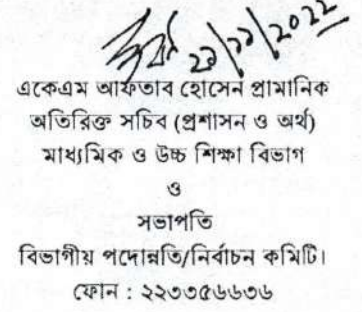 ২১/১১/২০২২
একেএম আফতাব হোসেন প্রামানিক
অতিরিক্ত সচিব (প্রশাসন ও অর্থ)
মাধ্যমিক ও উচ্চ শিক্ষা বিভাগ
ও
সভাপতি
বিভাগীয় পদোন্নতি/নির্বাচন কমিটি।
ফোন : ২২৩৩৫৬৬৩৬